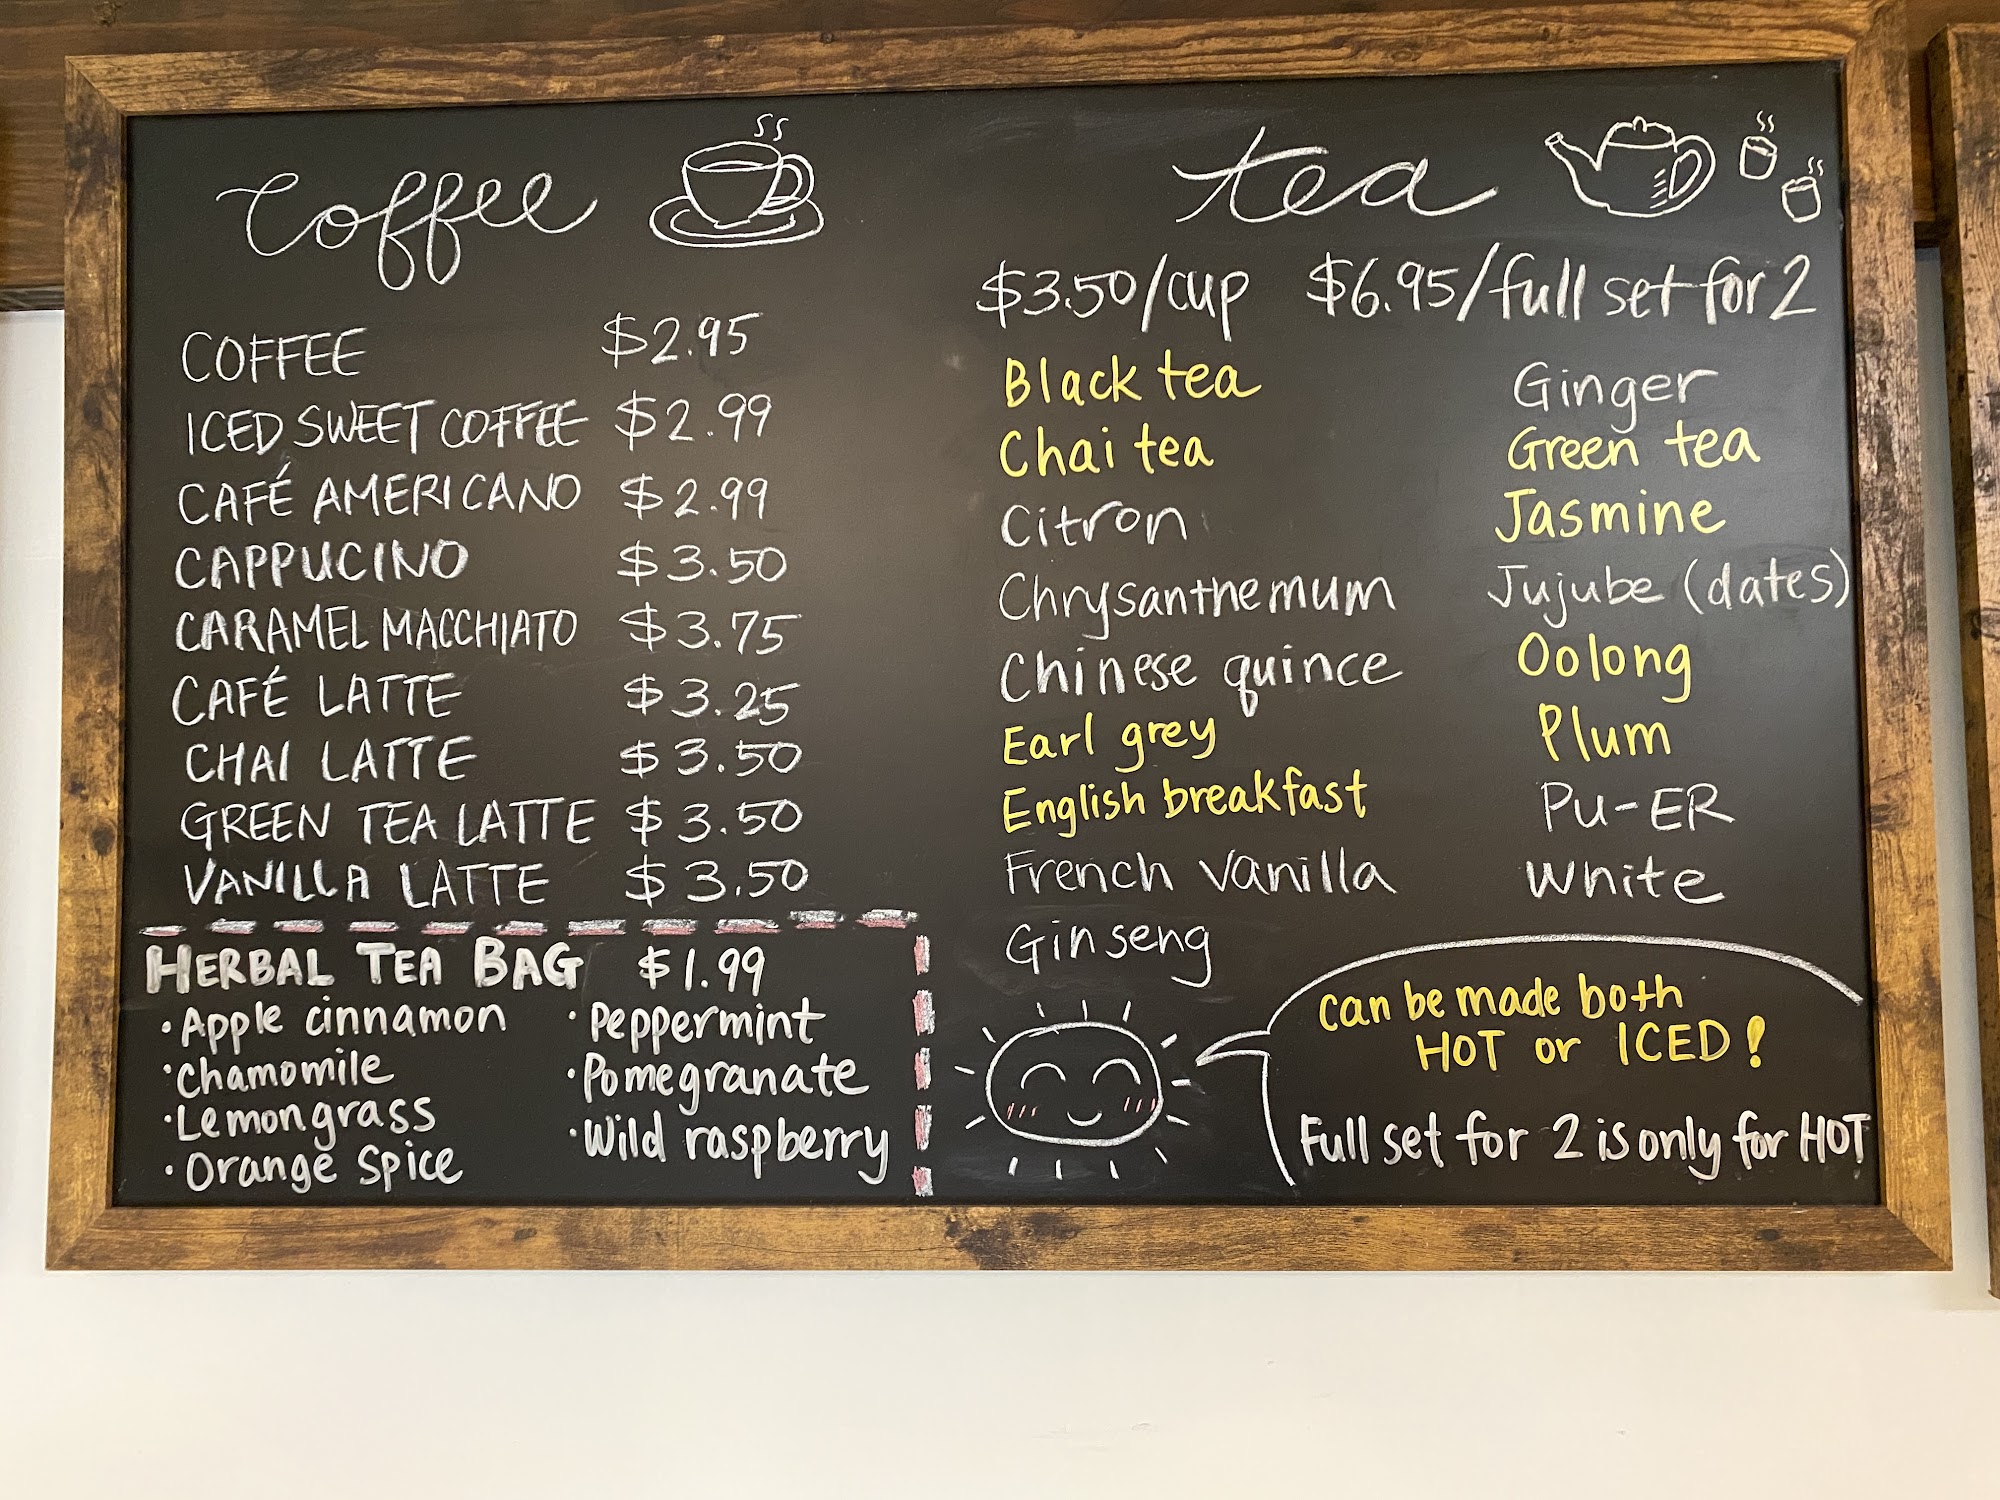 Coffee
COFFEE $2.95
ICED SWEET COFFEE $2.99
CAFÉ AMERICANO $2.99
CAPPUCINO $3.50
CARAMEL MACCHIATO $3.75
CAFÉ LATTE $3.25
CHAI LATTE $3.50
GREEN TEA LATTE $3.50
VANILLA LATTE $3.50
HERBAL TEA BAG $1.99
• Apple cinnamon
• Chamomile
• Lemongrass
• Orange Spice
• Peppermint
• Pomegranate
• Wild raspberry
tea
$3.50/cup $6.95/full set for 2
Black tea
Chai tea
Citron
Chrysanthemum
Chinese quince
Earl grey
English breakfast
French vanilla
Ginseng
Ginger
Green tea
Jasmine
Jujube (dates)
Oolong
Plum
PU-ER
White
can be made both
HOT or ICED!
Full set for 2 is only for HOT